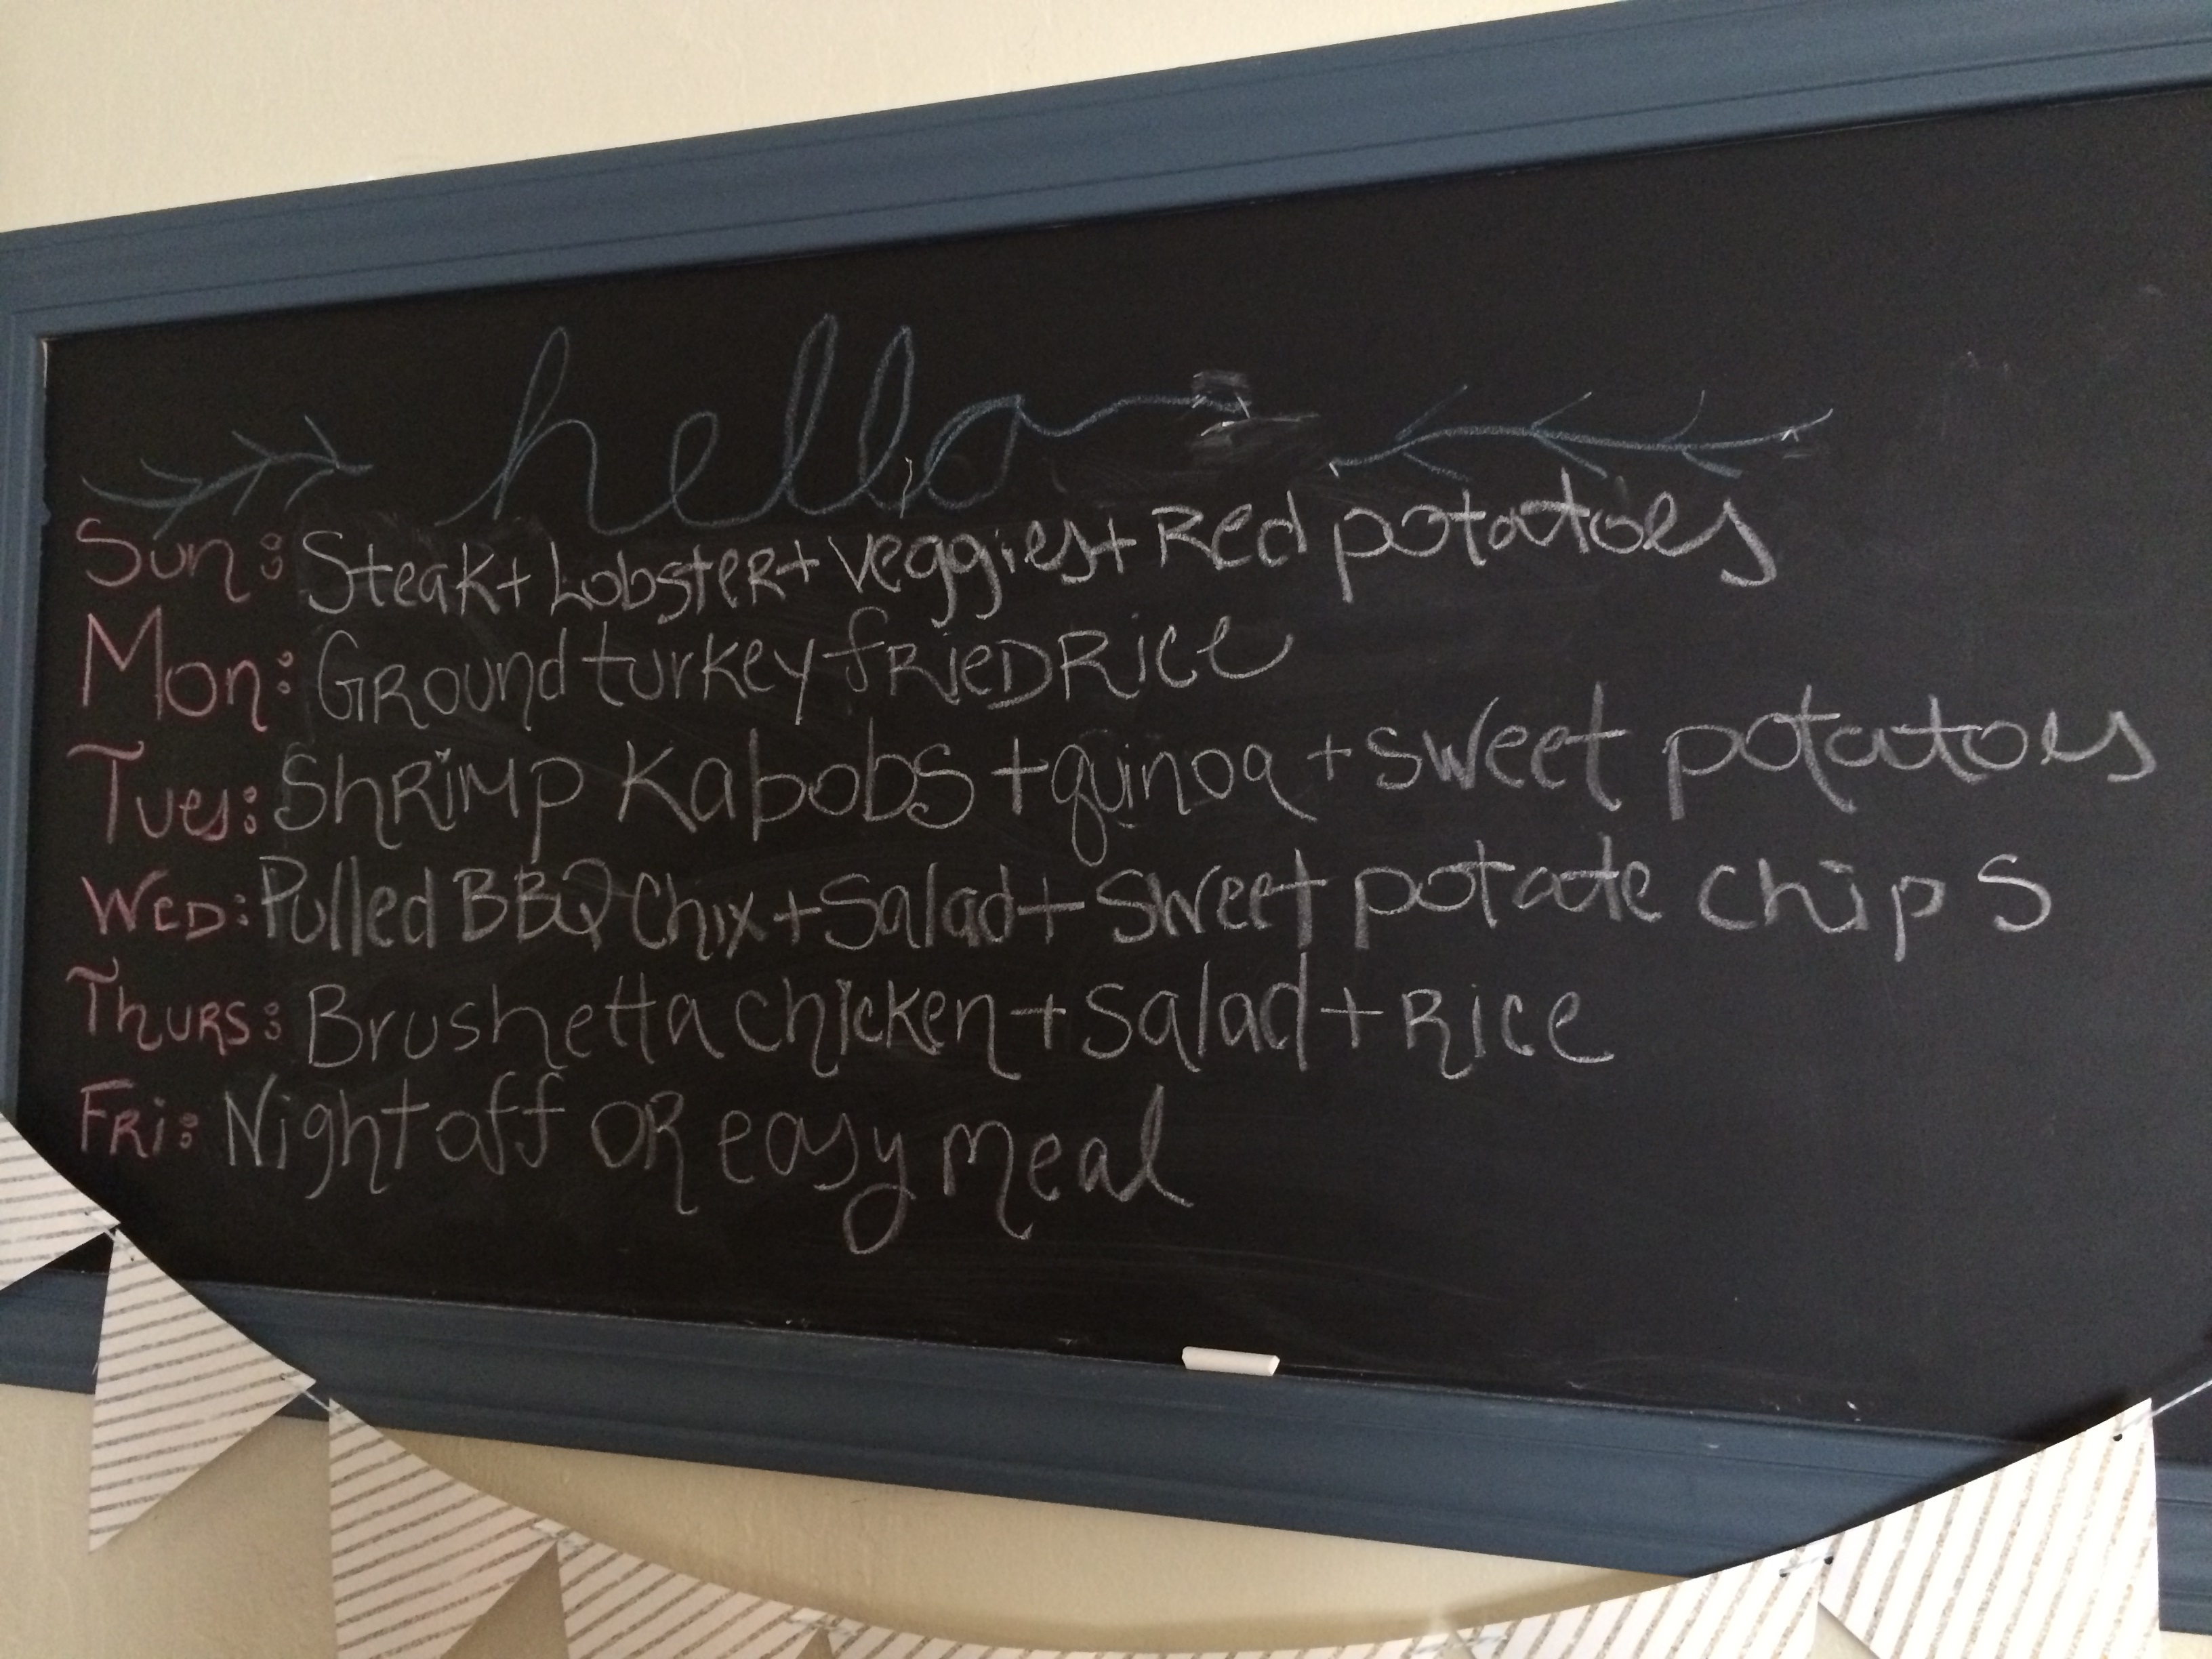 hello
Sun: Steak + Lobster + veggies + Red potatoes
Mon: Ground turkey fRieD Rice
Tues: ShRimp Kabobs + quinoa + sweet potatoes
WeD: Pulled BBQ Chix + Salad + Sweet potate chips
ThuRs: Brushetta chicken + Salad + Rice
FRi: Night off OR easy meal